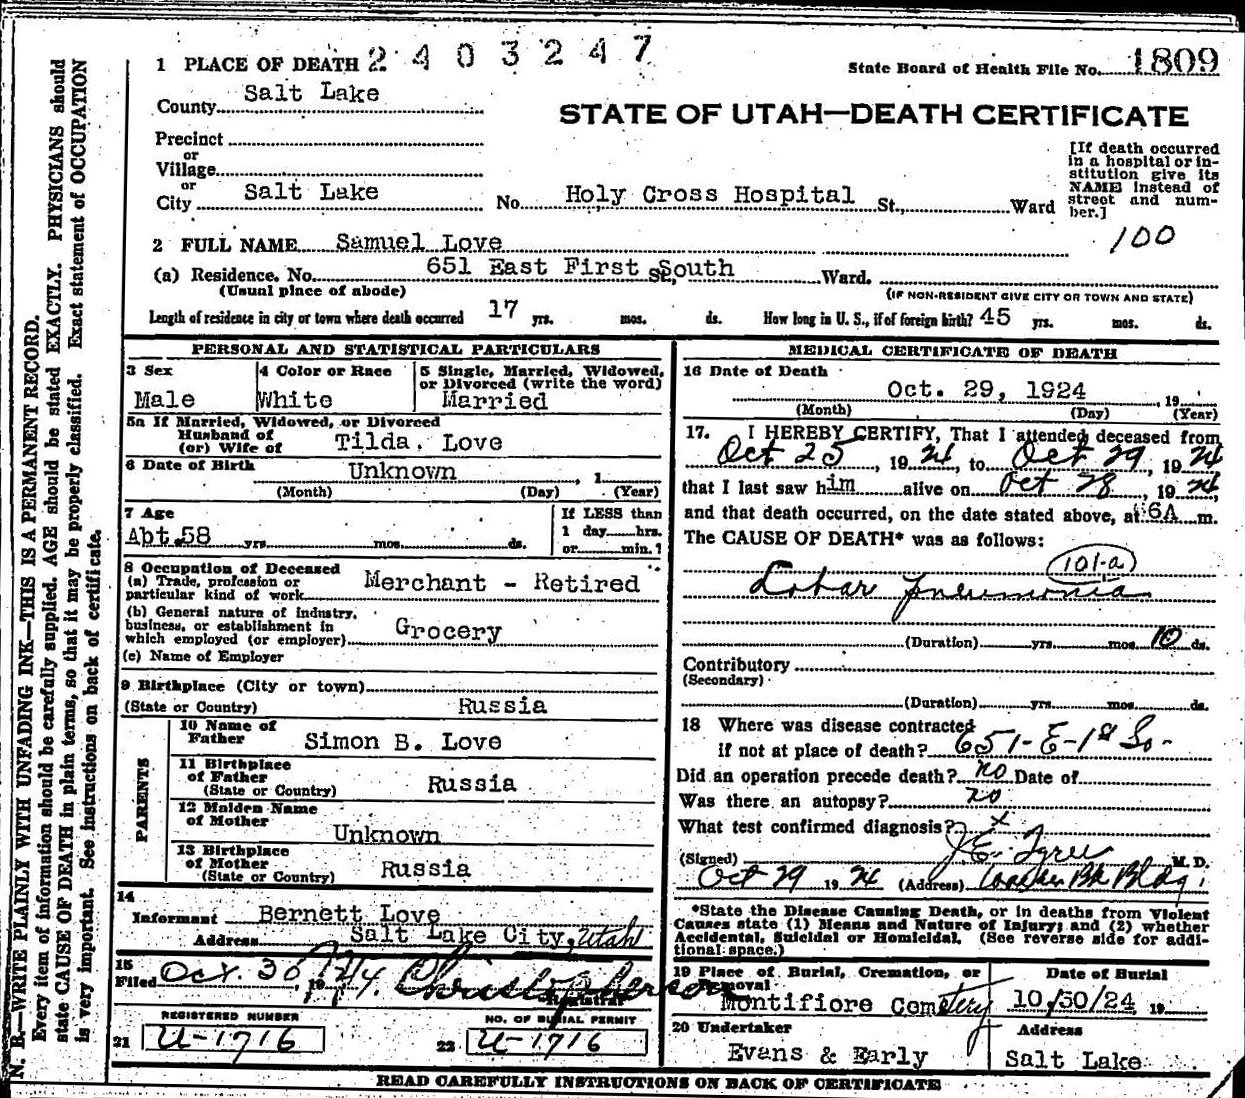 2403247
1 PLACE OF DEATH
State Board of Health File No. 1809
County Salt Lake
STATE OF UTAH—DEATH CERTIFICATE
Precinct
or
Village
or
City Salt Lake No. Holy Cross Hospital St., Ward
[If death occurred
in a hospital or in-
stitution give its
NAME instead of
street and num-
ber.]
100
2 FULL NAME Samuel Love
(a) Residence. No. 651 East First South St., Ward.
(Usual place of abode)
(IF NON-RESIDENT GIVE CITY OR TOWN AND STATE)
Length of residence in city or town where death occurred 17 yrs. mos. ds. How long in U. S., if of foreign birth? 45 yrs. mos. ds.
PERSONAL AND STATISTICAL PARTICULARS
3 Sex
Male
4 Color or Race
White
5 Single, Married, Widowed,
or Divorced (write the word)
Married
5a If Married, Widowed, or Divorced
Husband of
(or) Wife of Tilda. Love
6 Date of Birth Unknown , 1
(Month) (Day) (Year)
7 Age
Abt.58 yrs. mos. ds.
If LESS than
1 day hrs.
or min.?
8 Occupation of Deceased
(a) Trade, profession or
particular kind of work Merchant - Retired
(b) General nature of industry,
business, or establishment in
which employed (or employer) Grocery
(c) Name of Employer
9 Birthplace (City or town)
(State or Country) Russia
PARENTS
10 Name of
Father Simon B. Love
11 Birthplace
of Father
(State or Country) Russia
12 Maiden Name
of Mother
Unknown
13 Birthplace
of Mother
(State or Country) Russia
14
Informant Bernett Love
Address Salt Lake City, Utah
15
Filed Oct. 30, 1924.
Registrar
REGISTERED NUMBER
21 U-1716
NO. OF BURIAL PERMIT
22 U-1716
MEDICAL CERTIFICATE OF DEATH
16 Date of Death
Oct. 29, 1924 , 19
(Month) (Day) (Year)
17. I HEREBY CERTIFY, That I attended deceased from
Oct 25, 1924, to Oct 29, 1924
that I last saw him alive on Oct 28, 1924,
and that death occurred, on the date stated above, at 6A m.
The CAUSE OF DEATH* was as follows:
101-a
Lobar pneumonia
(Duration) yrs. mos. 10 ds.
Contributory
(Secondary)
(Duration) yrs. mos. ds.
18 Where was disease contracted
if not at place of death? 651-E-1st So-
Did an operation precede death? no Date of
Was there an autopsy? no
What test confirmed diagnosis? x
(Signed) J.E. M.D.
Oct 29 1924 (Address) Bk Bldg.
*State the Disease Causing Death, or in deaths from Violent
Causes state (1) Means and Nature of Injury; and (2) whether
Accidental, Suicidal or Homicidal. (See reverse side for addi-
tional space.)
19 Place of Burial, Cremation, or
Removal
Montifiore Cemetery
Date of Burial
10/30/24 19
20 Undertaker
Evans & Early
Address
Salt Lake
READ CAREFULLY INSTRUCTIONS ON BACK OF CERTIFICATE
N. B.—WRITE PLAINLY WITH UNFADING INK—THIS IS A PERMANENT RECORD.
Every item of information should be carefully supplied. AGE should be stated EXACTLY. PHYSICIANS should
state CAUSE OF DEATH in plain terms, so that it may be properly classified. Exact statement of OCCUPATION
is very important. See instructions on back of certificate.